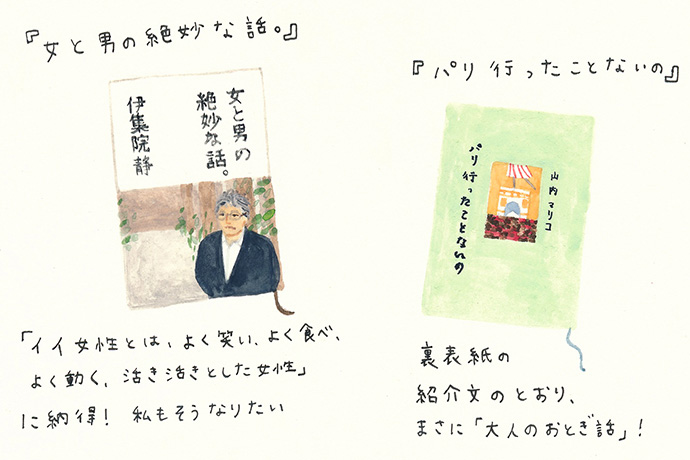 『女と男の絶妙な話。』
女と男の
絶妙な話。
伊集院静
「イイ女性とは、よく笑い、よく食べ、
よく動く、活き活きとした女性」
に納得！ 私もそうなりたい
『パリ行ったことないの』
山内マリコ
パリ行ったことないの
裏表紙の
紹介文のとおり、
まさに「大人のおとぎ話」！